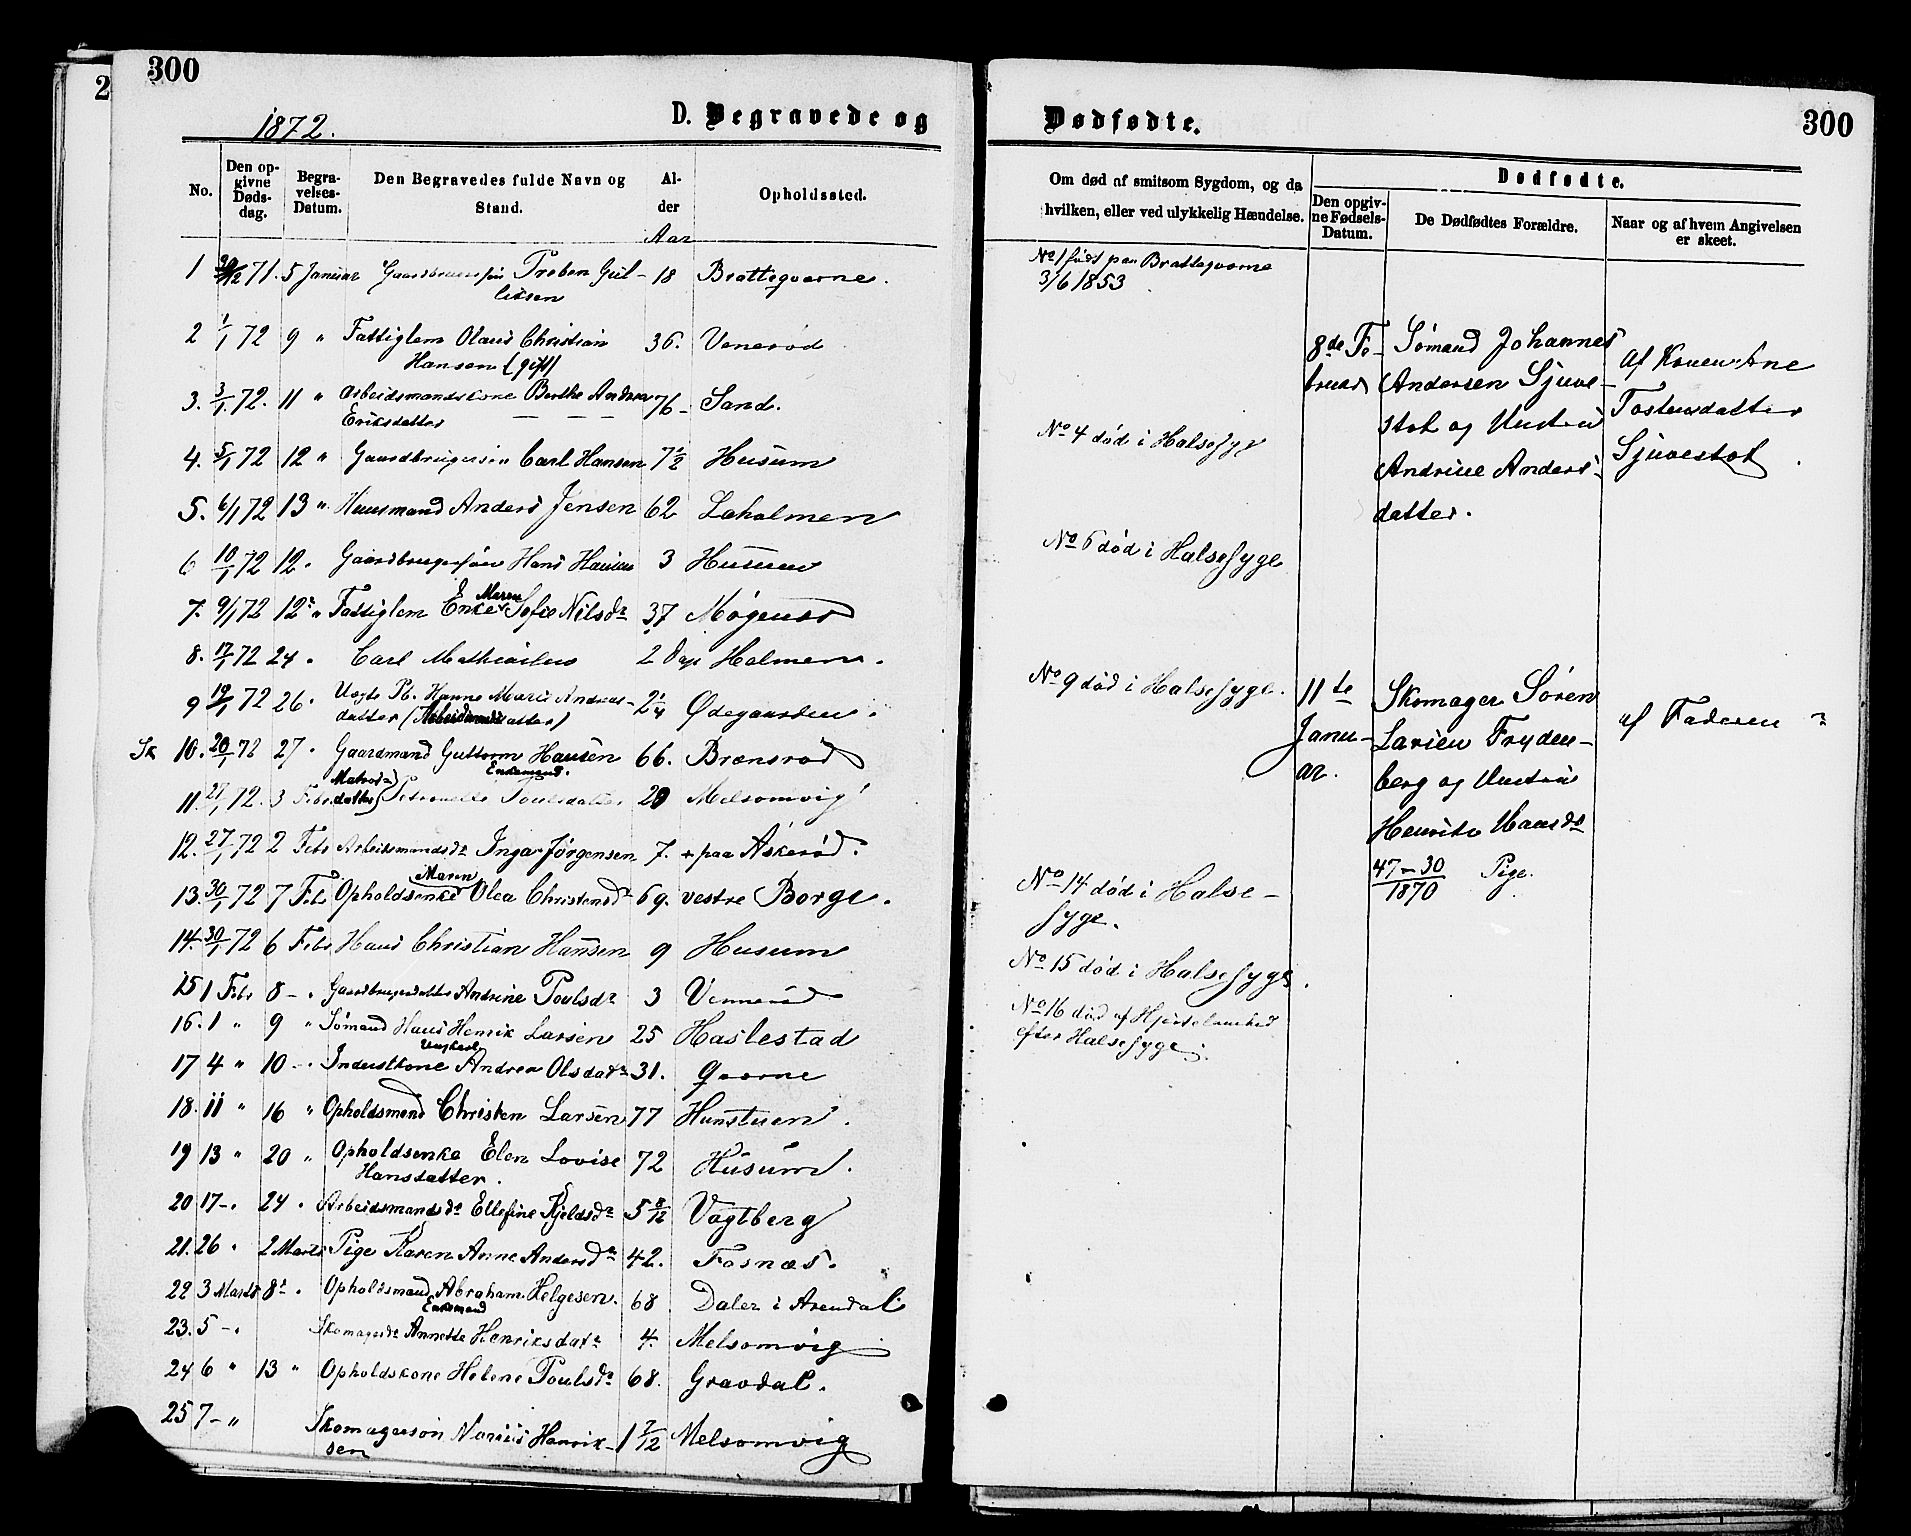 2
300
1872.
D. Begravede og
No.
Den op-
givne
Døds-
dag.
Begra-
velses-
Datum.
Den Begravedes fulde Navn og
Stand.
Al-
der
Aar
Opholdssted.
1 30/12 71. 5 Januar Preben Gul- 18 Brattequerne.
liksen
2 1/1 72 9 " Fattiglem Olaus Christian 36. Venerød
Hansen (gift)
3. 3/1 72. 11 " Arbeidsmandskone Berthe Andrea 76 Sand.
Eriksdatter
4. 5/1 72 12 " Gaardbrugersøn Carl Hansen 7 1/2 Husum
5. 6/1 72 13 " Huusmand Anders Jensen 62 Laholmen
6 10/1 72 12 " Gaardbrugersøn Hans Hansen 3 Husum
Maren
7. 9/1 72 12 " Fattiglem Enke Sofie Nilsdr 37 Møgenes
8. 17/1 72 24 " Carl Mathiasen 2 Dage Holmen.
9 19/1 72 26. Uægte Pb. Hanne Marie Andreas- 2 1/4 Ødegaarden.
datter (Arbeidsmandsdatter)
Sk 10. 20/1 72 27 " Gaardmand Guttorm Hansen 66. Brensrød
Enkemand.
Matros-
11. 27/1 72. 3 Febr datter Petronelle Poulsdatter 20 Melsomvig
12. 27/1 72 2 Febr Arbeidsmandsdr Inga Jørgensen 7. + paa Askerød.
Maren
13. 30/1 72 7 Febr Opholdsenke Olea Christensdr 69. vestre Borge.
14. 30/1 72 6 Febr Hans Christian Hansen 9 Husum
15 1 Febr 8 - " Gaardbrugerdatter Andrine Poulsdr 3 Vennerød
16. 1 " 9 " Sømand Hans Henrik Larsen 25 Haslestad
Ungkarl
17 4 " 10 - " Inderstkone Andrea Olsdatr 31. Qverne
18. 11 " 16 " Opholdsmand Christen Larsen 77 Hunstuen.
19 13 " 20 " Opholdsenke Elen Lovise 72 Husum.
Hansdatter.
20 17 - " 24 " Arbeidsmandsdr Ellefine Kjeldsdr 5 8/12 Vagtberg
21. 26 " 2 Marts Pige Karen Anne Andersdr 42. Fosnæs.
22 3 Marts 8 " Opholdsmand Abraham Helgesen. 68 Daler i Arendal
Enkemand
23. 5 - " Skomagerdr Annette Henriksdatr 4. Melsomvig
24 6 " 13 " Opholdskone Helene Poulsdr 68. Gravdal.
25 7 - " Skomagersøn Henrik- 1 7/12 Melsomvig
sen
Dødfødte.
300
Om død af smitsom Sygdom, og da
hvilken, eller ved ulykkelig Hændelse.
Dødfødte.
Den opgiv-
ne Fødsels-
Datum.
De Dødfødtes Forældre.
Naar og af hvem Angivelsen
er skeet.
No 1 født paa Brattequerne
3/6 1853
No 4 død i Halsesyge
No 6 død i Halsesyge
No 9 død i Halsesyge.
No 14 død i Halse-
syge.
No 15 død i Halsesyge.
No 16 død af Hjertelamhed
efter Halsesyge.
8de Fe-
bruar
Sømand Johannes
Andersen Sjuve-
stok og Hustru
Andrine Anders-
datter.
af Konen Ane
Tostensdatter
Sjuvestok.
11te
Janu-
ar.
Skomager Søren
Larsen Fryden-
berg og Hustru
Henrikke Hansdr
47-30
1870
Pige.
af Faderen